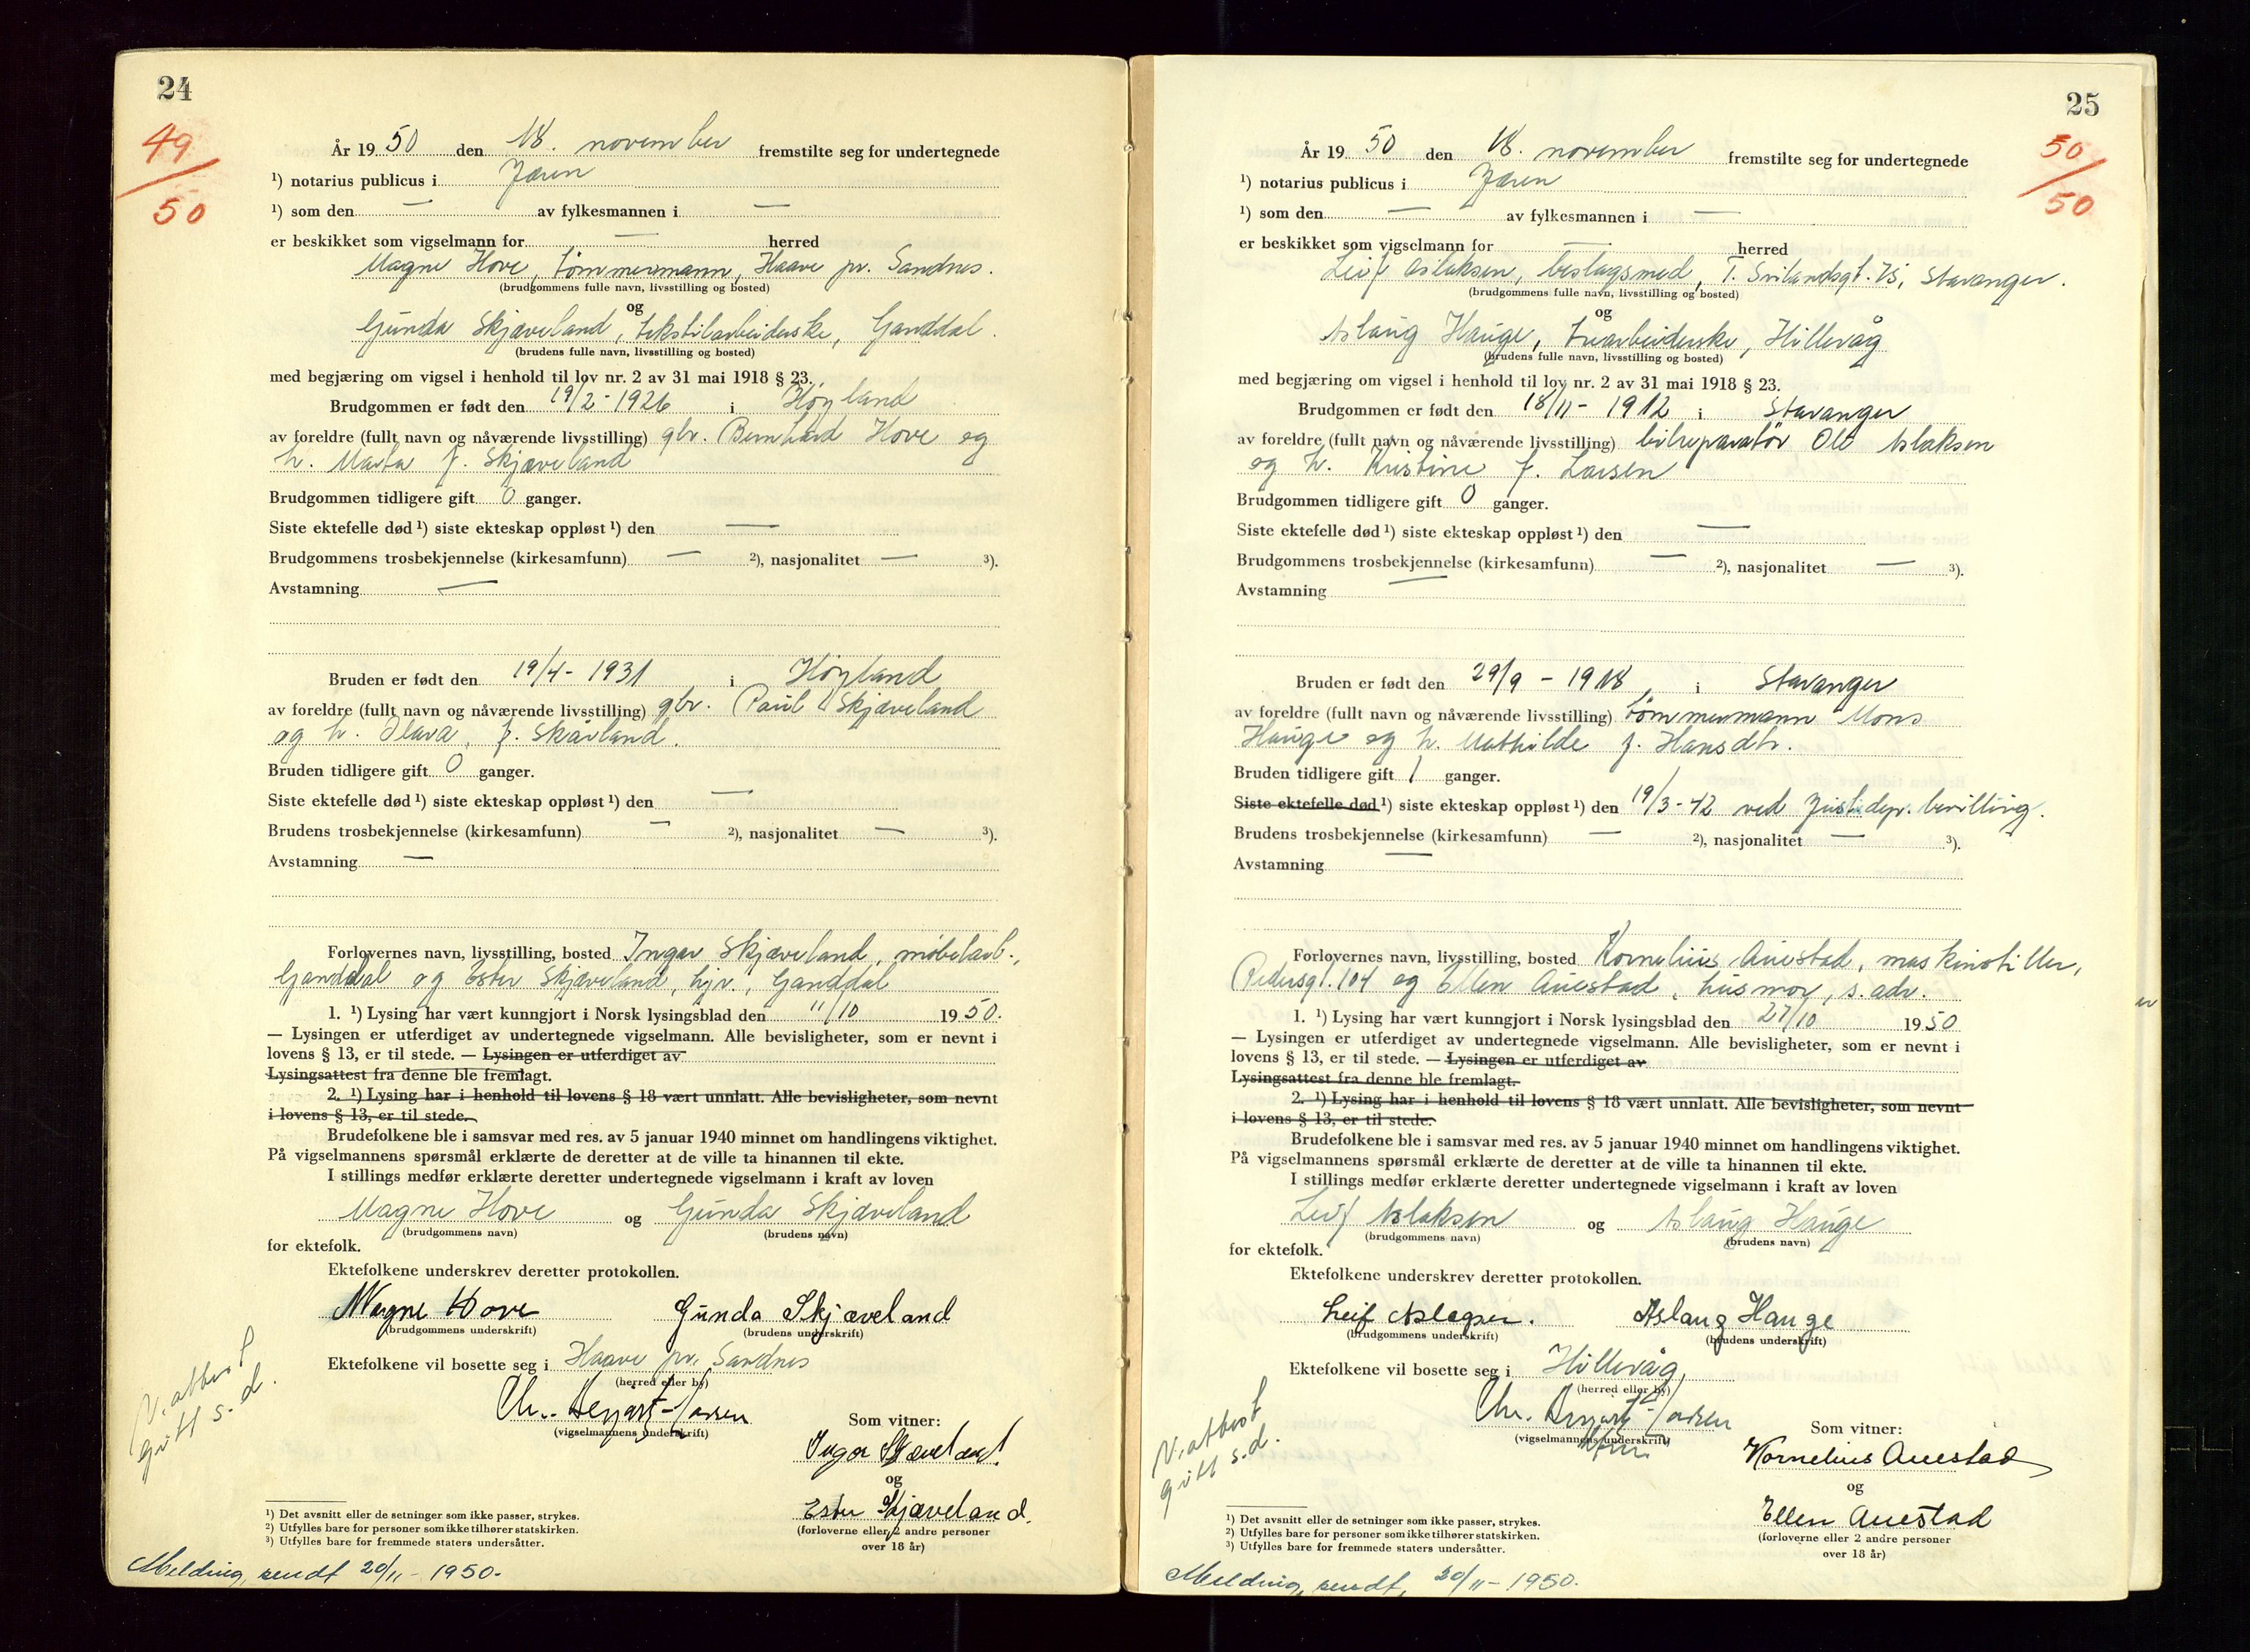 24
49/50
År 1950 den 18. november fremstilte seg for undertegnede
¹) notarius publicus i Jæren
¹) som den — av fylkesmannen i —
er beskikket som vigselmann for — herred
Magne Hove, tømmermann, Haave pr. Sandnes.
(brudgommens fulle navn, livsstilling og bosted)
og
Gunda Skjæveland, tekstilarbeiderske, Ganddal.
(brudens fulle navn, livsstilling og bosted)
med begjæring om vigsel i henhold til lov nr. 2 av 31 mai 1918 § 23.
Brudgommen er født den 19/2-1926 i Høyland
av foreldre (fullt navn og nåværende livsstilling) gbr. Bernhard Hove og
h. Marta f. Skjæveland
Brudgommen tidligere gift 0 ganger.
Siste ektefelle død ¹) siste ekteskap oppløst ¹) den —
Brudgommens trosbekjennelse (kirkesamfunn) — ²), nasjonalitet — ³).
Avstamning —
Bruden er født den 19/4-1931 i Høyland
av foreldre (fullt navn og nåværende livsstilling) gbr. Paul Skjæveland
og h. Olava, f. Skårland.
Bruden tidligere gift 0 ganger.
Siste ektefelle død ¹) siste ekteskap oppløst ¹) den —
Brudens trosbekjennelse (kirkesamfunn) — ²), nasjonalitet — ³).
Avstamning —
Forlovernes navn, livsstilling, bosted Ingar Skjæveland, møbelarb.,
Ganddal og Ester Skjæveland, hjv., Ganddal
1. ¹) Lysing har vært kunngjort i Norsk lysingsblad den 11/10 1950.
— Lysingen er utferdiget av undertegnede vigselmann. Alle bevisligheter, som er nevnt i
lovens § 13, er til stede. — Lysingen er utferdiget av
Lysingsattest fra denne ble fremlagt.
2. ¹) Lysing har i henhold til lovens § 18 vært unnlatt. Alle bevisligheter, som nevnt
i lovens § 13, er til stede.
Brudefolkene ble i samsvar med res. av 5 januar 1940 minnet om handlingens viktighet.
På vigselmannens spørsmål erklærte de deretter at de ville ta hinannen til ekte.
I stillings medfør erklærte deretter undertegnede vigselmann i kraft av loven
Magne Hove og Gunda Skjæveland
(brudgommens navn) (brudens navn)
for ektefolk.
Ektefolkene underskrev deretter protokollen.
Magne Hove Gunda Skjæveland
(brudgommens underskrift) (brudens underskrift)
Ektefolkene vil bosette seg i Haave pr. Sandnes
(herred eller by)
(vigselmannens underskrift)
Som vitner:
Ingar Skjæveland
og
Ester Skjæveland.
(forloverne eller 2 andre personer
over 18 år)
V. attest
gitt s.d.
¹) Det avsnitt eller de setninger som ikke passer, strykes.
²) Utfylles bare for personer som ikke tilhører statskirken.
³) Utfylles bare for fremmede staters undersåtter.
Melding sendt 20/11-1950.
25
50/50
År 1950 den 18. november fremstilte seg for undertegnede
¹) notarius publicus i Jæren
¹) som den — av fylkesmannen i —
er beskikket som vigselmann for — herred
Leif Aslaksen, beslagsmed, T. Svilandsgt. 75, Stavanger.
(brudgommens fulle navn, livsstilling og bosted)
og
Aslaug Hauge, Hillevåg
(brudens fulle navn, livsstilling og bosted)
med begjæring om vigsel i henhold til lov nr. 2 av 31 mai 1918 § 23.
Brudgommen er født den 18/11-1912 i Stavanger
av foreldre (fullt navn og nåværende livsstilling) bilreparatør Ole Aslaksen
og h. Kristine f. Larsen
Brudgommen tidligere gift 0 ganger.
Siste ektefelle død ¹) siste ekteskap oppløst ¹) den —
Brudgommens trosbekjennelse (kirkesamfunn) — ²), nasjonalitet — ³).
Avstamning —
Bruden er født den 29/9-1918, i Stavanger
av foreldre (fullt navn og nåværende livsstilling) tømmermann Mons
Hauge og h. Mathilde f. Hansdtr.
Bruden tidligere gift 1 ganger.
Siste ektefelle død ¹) siste ekteskap oppløst ¹) den 19/3-42 ved Justisdep. bevilling.
Brudens trosbekjennelse (kirkesamfunn) — ²), nasjonalitet — ³).
Avstamning —
Forlovernes navn, livsstilling, bosted Kornelius Auestad, maskinstiller,
Pedersgt. 104 og Ellen Auestad, husmor, s. adr.
1. ¹) Lysing har vært kunngjort i Norsk lysingsblad den 27/10 1950
— Lysingen er utferdiget av undertegnede vigselmann. Alle bevisligheter, som er nevnt i
lovens § 13, er til stede. — Lysingen er utferdiget av
Lysingsattest fra denne ble fremlagt.
2. ¹) Lysing har i henhold til lovens § 18 vært unnlatt. Alle bevisligheter, som nevnt
i lovens § 13, er til stede.
Brudefolkene ble i samsvar med res. av 5 januar 1940 minnet om handlingens viktighet.
På vigselmannens spørsmål erklærte de deretter at de ville ta hinannen til ekte.
I stillings medfør erklærte deretter undertegnede vigselmann i kraft av loven
Leif Aslaksen og Aslaug Hauge
(brudgommens navn) (brudens navn)
for ektefolk.
Ektefolkene underskrev deretter protokollen.
Leif Aslaksen. Aslaug Hauge
(brudgommens underskrift) (brudens underskrift)
Ektefolkene vil bosette seg i Hillevåg,
(herred eller by)
(vigselmannens underskrift)
Som vitner:
Kornelius Auestad
og
Ellen Auestad
(forloverne eller 2 andre personer
over 18 år)
V. attest
gitt s.d.
¹) Det avsnitt eller de setninger som ikke passer, strykes.
²) Utfylles bare for personer som ikke tilhører statskirken.
³) Utfylles bare for fremmede staters undersåtter.
Melding sendt, 20/11-1950.